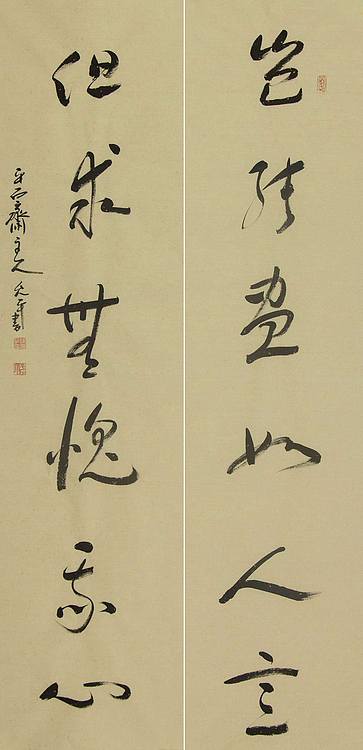 豈能盡如人意
但求無愧我心
齋主人 書